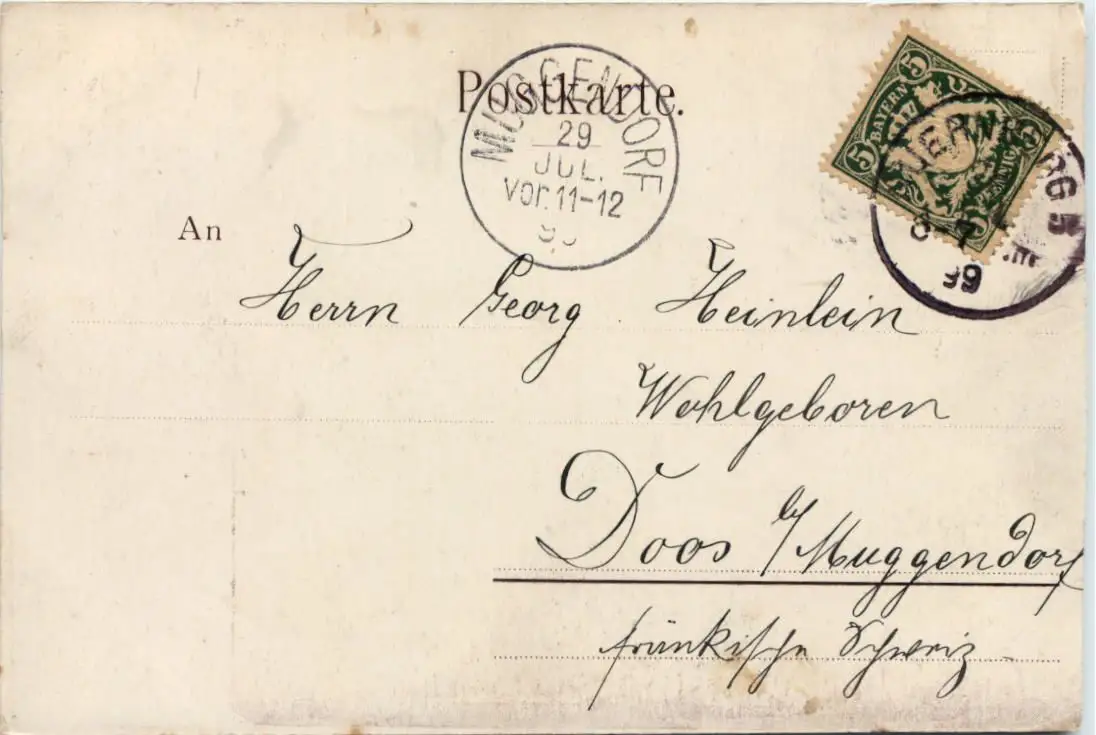 Postkarte.
MUGGENDORF
29
JUL.
Vor. 11-12
5 BAYERN 5
PFENNIG
99
An
Herrn Georg Heinlein
Wohlgeboren
Doos b/Muggendorf
fränkische Schweiz